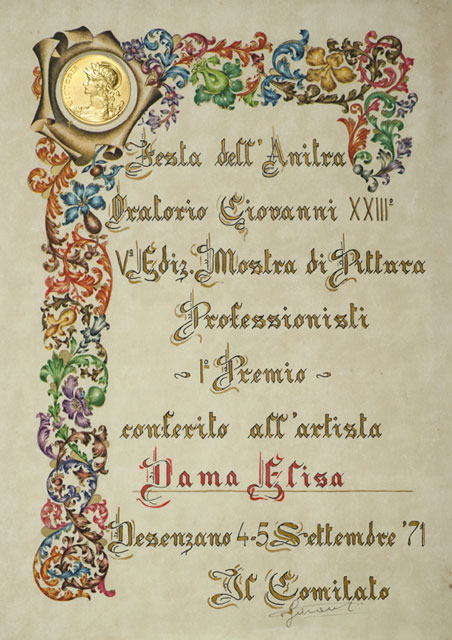 Festa dell'Anitra
Oratorio Giovanni XXIII°
V° Ediz. Mostra di Pittura
Professionisti
~ 1° Premio ~
conferito all'artista
Dama Elisa
Desenzano 4-5 Settembre '71
Il Comitato